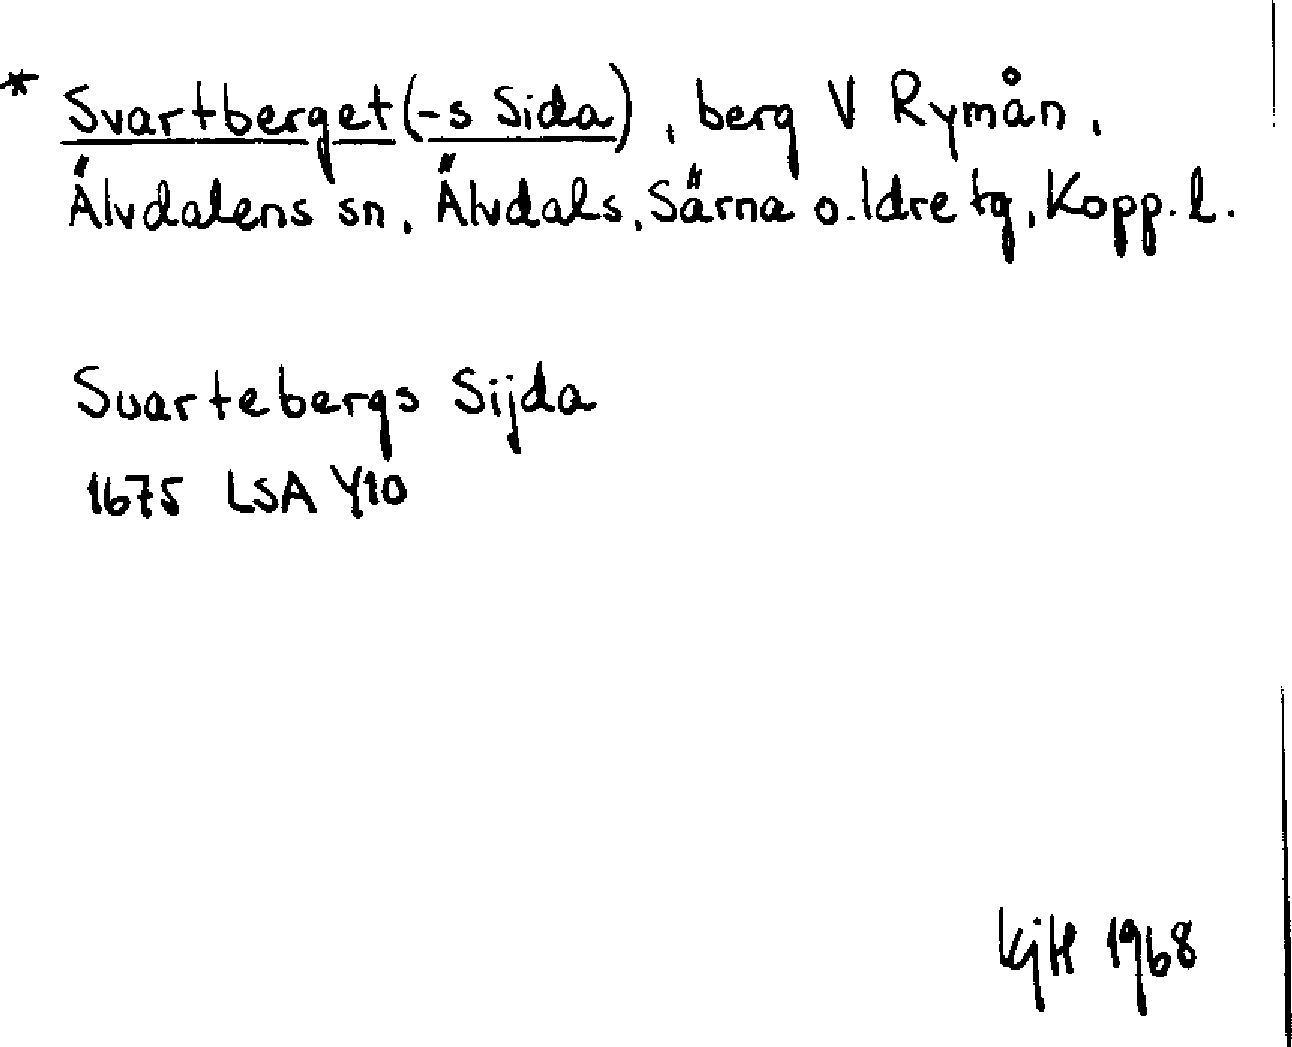 * Svartberget (-s Sida), berg V Rymån,
Älvdalens sn, Älvdals, Särna o. Idre tg, Kopp. l.
Suartebergs Sijda
1675 LSA Y10
KjH 1968